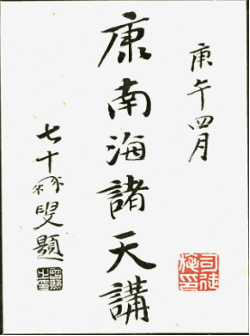 庚午四月
康南海諸天講
七十叟題
司徒